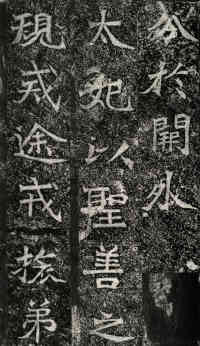 分於開外
太妃以聖善之
規戒途戎旅弟